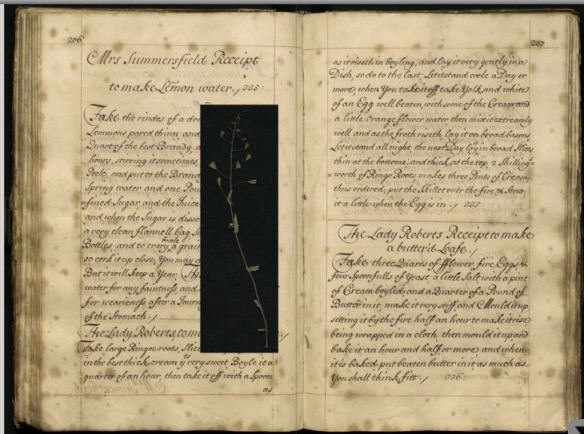 206
Mrs Summersfield Receipt
to make Lemon water./ 335
Take the rindes of a do
Lemmons pared thin, and
Quart of the best Brandy, a
hours, stirring it sometimes
Peele, and put to the Brand
Spring water and one Pou
fined Sugar, and the Juice
and when the Sugar is disso
a very clean flannell bag
Bottles, and to every a grain
bottle
so cork it up close, You may
But it will keep a Year,
water for any faintness and
for weariness after a Journ
of the Stomach./
The Lady Roberts to m
Take large Ringoe roots, Slice
in the best thick cream & very sweet Boyle it a
quarter of an hour, then take it off with a Spoon
as
207
as it riseth in boyling, and lay it very gently in a
Dish, so do to the last, Let it stand coole a Day or
more, when You take it off take Yolk and white
of an Egg well beaten, with some of the Cream and
a little Orange flower water then mix it extreamly
well and as the froth riseth, lay it on broad basons
Let it stand all night, the next Day lay in broad Slices
thin at the bottome, and thick at the top, 2 Shilling
worth of Ringo Roots makes three Pints of Cream
thus ordered, put the Skillet over the fire & Stew
it a little when the Egg is in./ 335
The Lady Roberts Receipt to make
a butter'd Loafe./
Take three Quarts of fflower, five Eggs,
four Spoonfulls of Yeast a little Salt, with a pint
of Cream boyled, and a Quarter of a Pound of
Butter in it, make it very stiff and Mould it up
setting it by the fire half an hour to make it rise
being wrapped in a cloth, then mould it up and
bake it an hour and half or more, and when
it is baked put beaten butter in it as much as
You shall think fitt./ 336